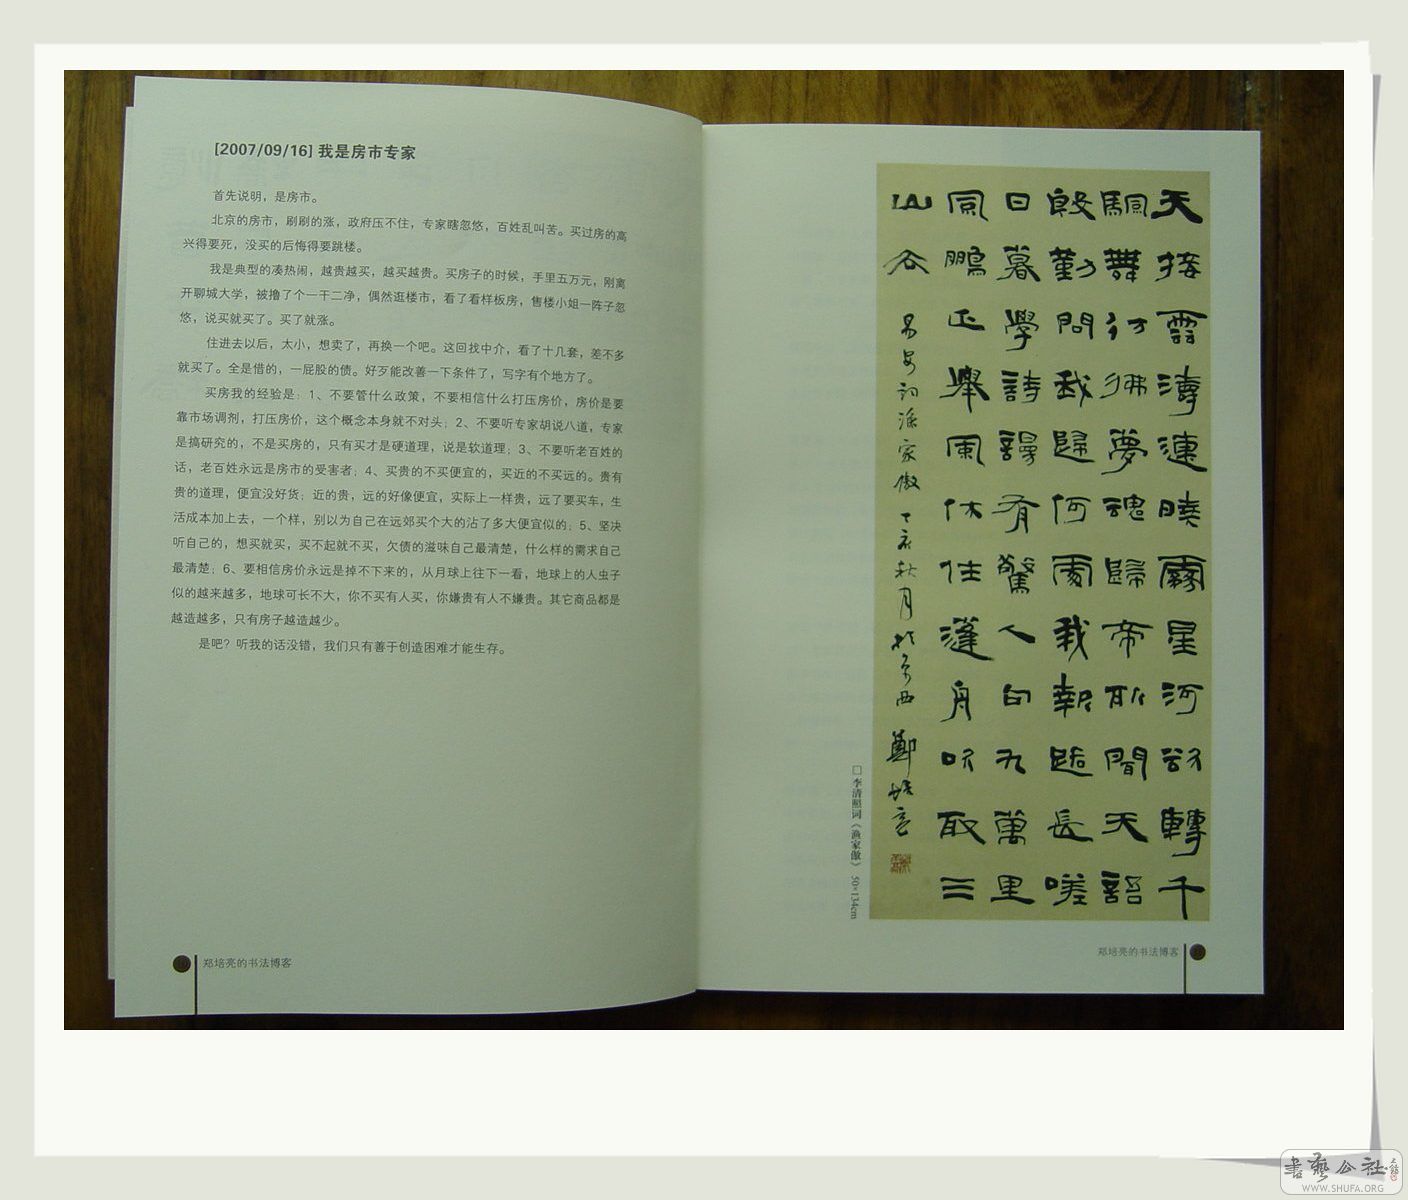 [2007/09/16] 我是房市专家
首先说明，是房市。
北京的房市，刷刷的涨，政府压不住，专家瞎忽悠，百姓乱叫苦。买过房的高
兴得要死，没买的后悔得要跳楼。
我是典型的凑热闹，越贵越买，越买越贵。买房子的时候，手里五万元，刚离
开聊城大学，被撸了个一干二净，偶然逛楼市，看了看样板房，售楼小姐一阵子忽
悠，说买就买了。买了就涨。
住进去以后，太小，想卖了，再换一个吧。这回找中介，看了十几套，差不多
就买了。全是借的，一屁股的债。好歹能改善一下条件了，写字有个地方了。
买房我的经验是：1、不要管什么政策，不要相信什么打压房价，房价是要
靠市场调剂，打压房价，这个概念本身就不对头；2、不要听专家胡说八道，专家
是搞研究的，不是买房的，只有买才是硬道理，说是软道理；3、不要听老百姓的
话，老百姓永远是房市的受害者；4、买贵的不买便宜的，买近的不买远的。贵有
贵的道理，便宜没好货；近的贵，远的好像便宜，实际上一样贵，远了要买车，生
活成本加上去，一个样，别以为自己在远郊买个大的沾了多大便宜似的；5、坚决
听自己的，想买就买，买不起就不买，欠债的滋味自己最清楚，什么样的需求自己
最清楚；6、要相信房价永远是掉不下来的，从月球上往下一看，地球上的人虫子
似的越来越多，地球可长不大，你不买有人买，你嫌贵有人不嫌贵。其它商品都是
越造越多，只有房子越造越少。
是吧？听我的话没错，我们只有善于创造困难才能生存。
郑培亮的书法博客
天接雲濤連曉霧星河欲轉千
颿舞彷彿夢魂歸帝所聞天語
殷勤問我歸何處我報路長嗟
日暮學詩謾有驚人句九萬里
風鵬正舉風休住蓬舟吹取三
山去 易安词漁家傲 丁亥秋月於京西 鄭培亮
□ 李清照词《渔家傲》 50×134cm
郑培亮的书法博客
書藝公社
WWW.SHUFA.ORG